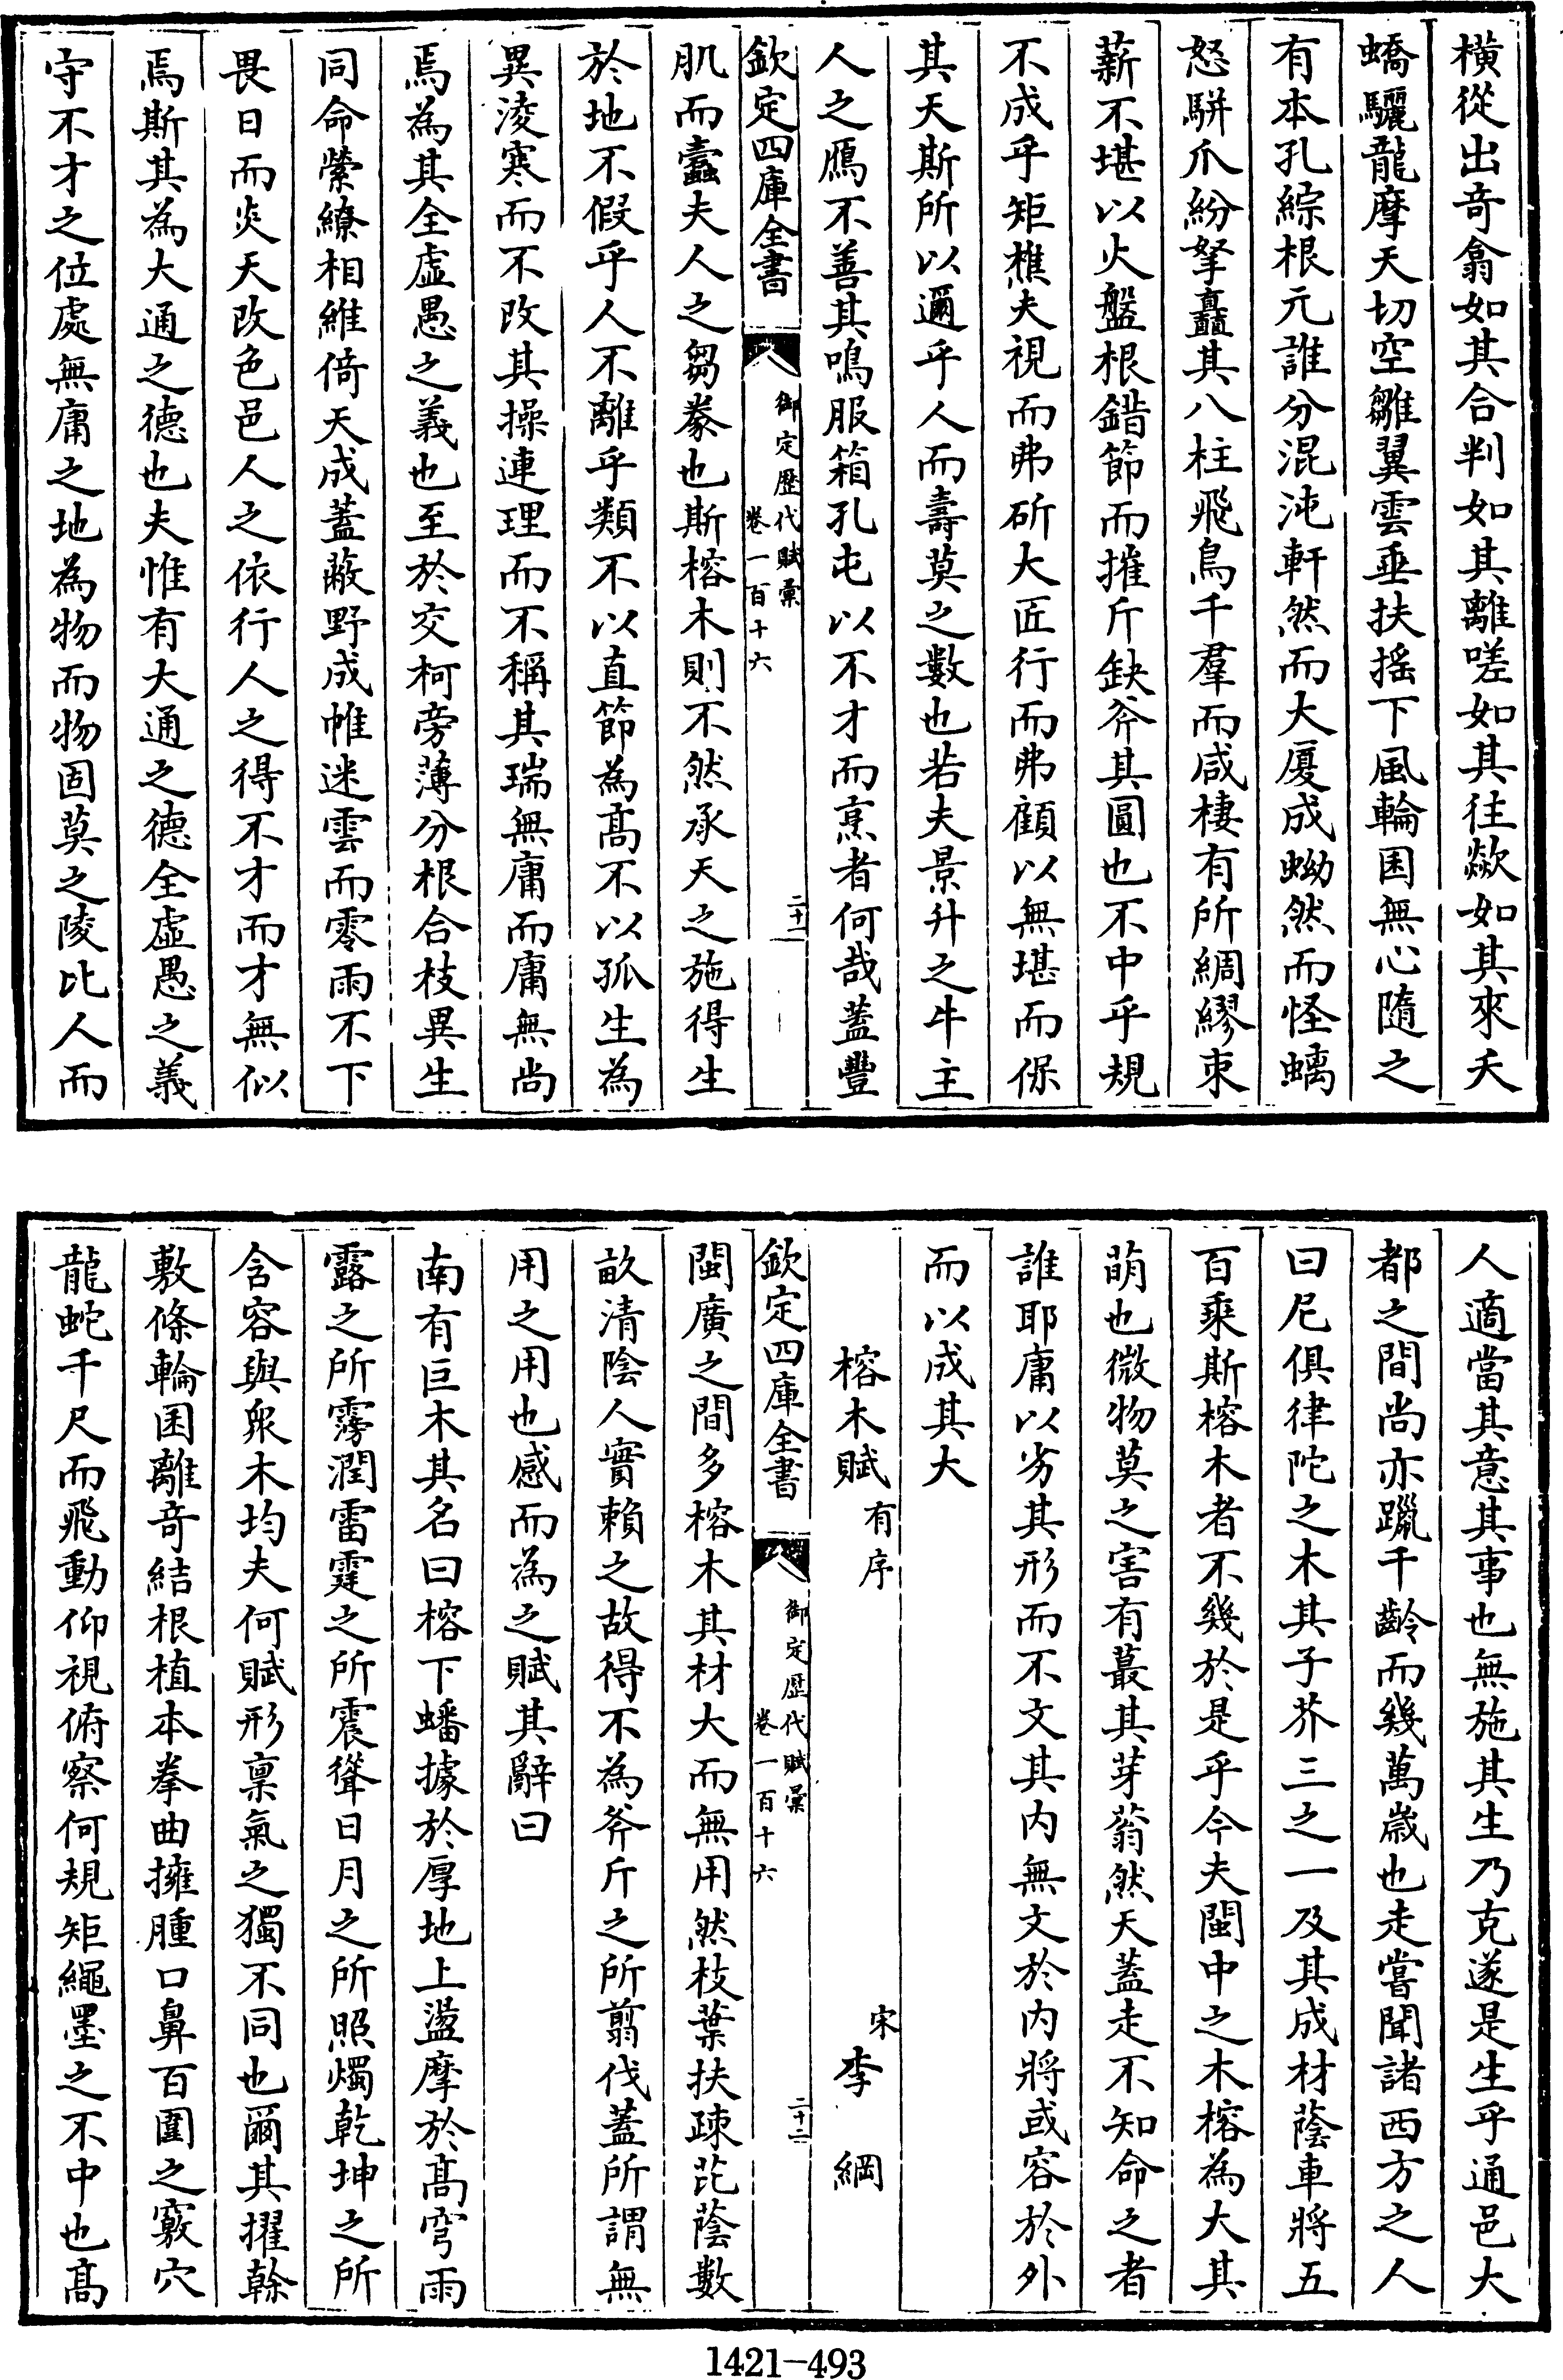 橫從出奇翕如其合判如其離嗟如其往歘如其來夭
蟜驪龍摩天切空雛翼雲垂扶揺下風輪囷無心隨之
有本孔綜根元誰分混沌軒然而大厦成蚴然而怪螭
怒駢爪紛拏矗其八柱飛鳥千羣而咸棲有所綢繆束
薪不堪以火盤根錯節而摧斤缺斧其圓也不中乎規
不成乎矩樵夫視而弗斫大匠行而弗顧以無堪而保
其天斯所以邇乎人而壽莫之數也若夫景升之牛主
人之鴈不善其鳴服箱孔屯以不才而烹者何哉蓋豐
欽定四庫全書
御定歷代賦彚
卷一百十六
二十一
肌而蠹夫人之芻豢也斯榕木則不然承天之施得生
於地不假乎人不離乎類不以直節為高不以孤生為
異淩寒而不改其操連理而不稱其瑞無庸而庸無尚
焉為其全虛愚之義也至於交柯旁薄分根合枝異生
同命縈繚相維倚天成蓋蔽野成帷迷雲而零雨不下
畏日而炎天改色邑人之依行人之得不才而才無似
焉斯其為大通之德也夫惟有大通之德全虛愚之義
守不才之位處無庸之地為物而物固莫之陵比人而
人適當其意其事也無施其生乃克遂是生乎通邑大
都之間尚亦躐千齡而幾萬嵗也走嘗聞諸西方之人
曰尼俱律陀之木其子芥三之一及其成材蔭車將五
百乘斯榕木者不幾於是乎今夫閩中之木榕為大其
萌也微物莫之害有蕞其芽蓊然天蓋走不知命之者
誰耶庸以劣其形而不文其内無文於内將或容於外
而以成其大
榕木賦 有序 宋 李綱
欽定四庫全書
御定歷代賦彚
卷一百十六
二十二
閩廣之間多榕木其材大而無用然枝葉扶疎芘蔭數
畝清陰人實賴之故得不為斧斤之所翦伐蓋所謂無
用之用也感而為之賦其辭曰
南有巨木其名曰榕下蟠據於厚地上盪摩於髙穹雨
露之所霶潤雷霆之所震聳日月之所照燭乾坤之所
含容與衆木均夫何賦形稟氣之獨不同也爾其擢幹
敷條輪囷離奇結根植本拳曲擁腫口鼻百圍之竅穴
龍蛇千尺而飛動仰視俯察何規矩繩墨之不中也髙
1421-493